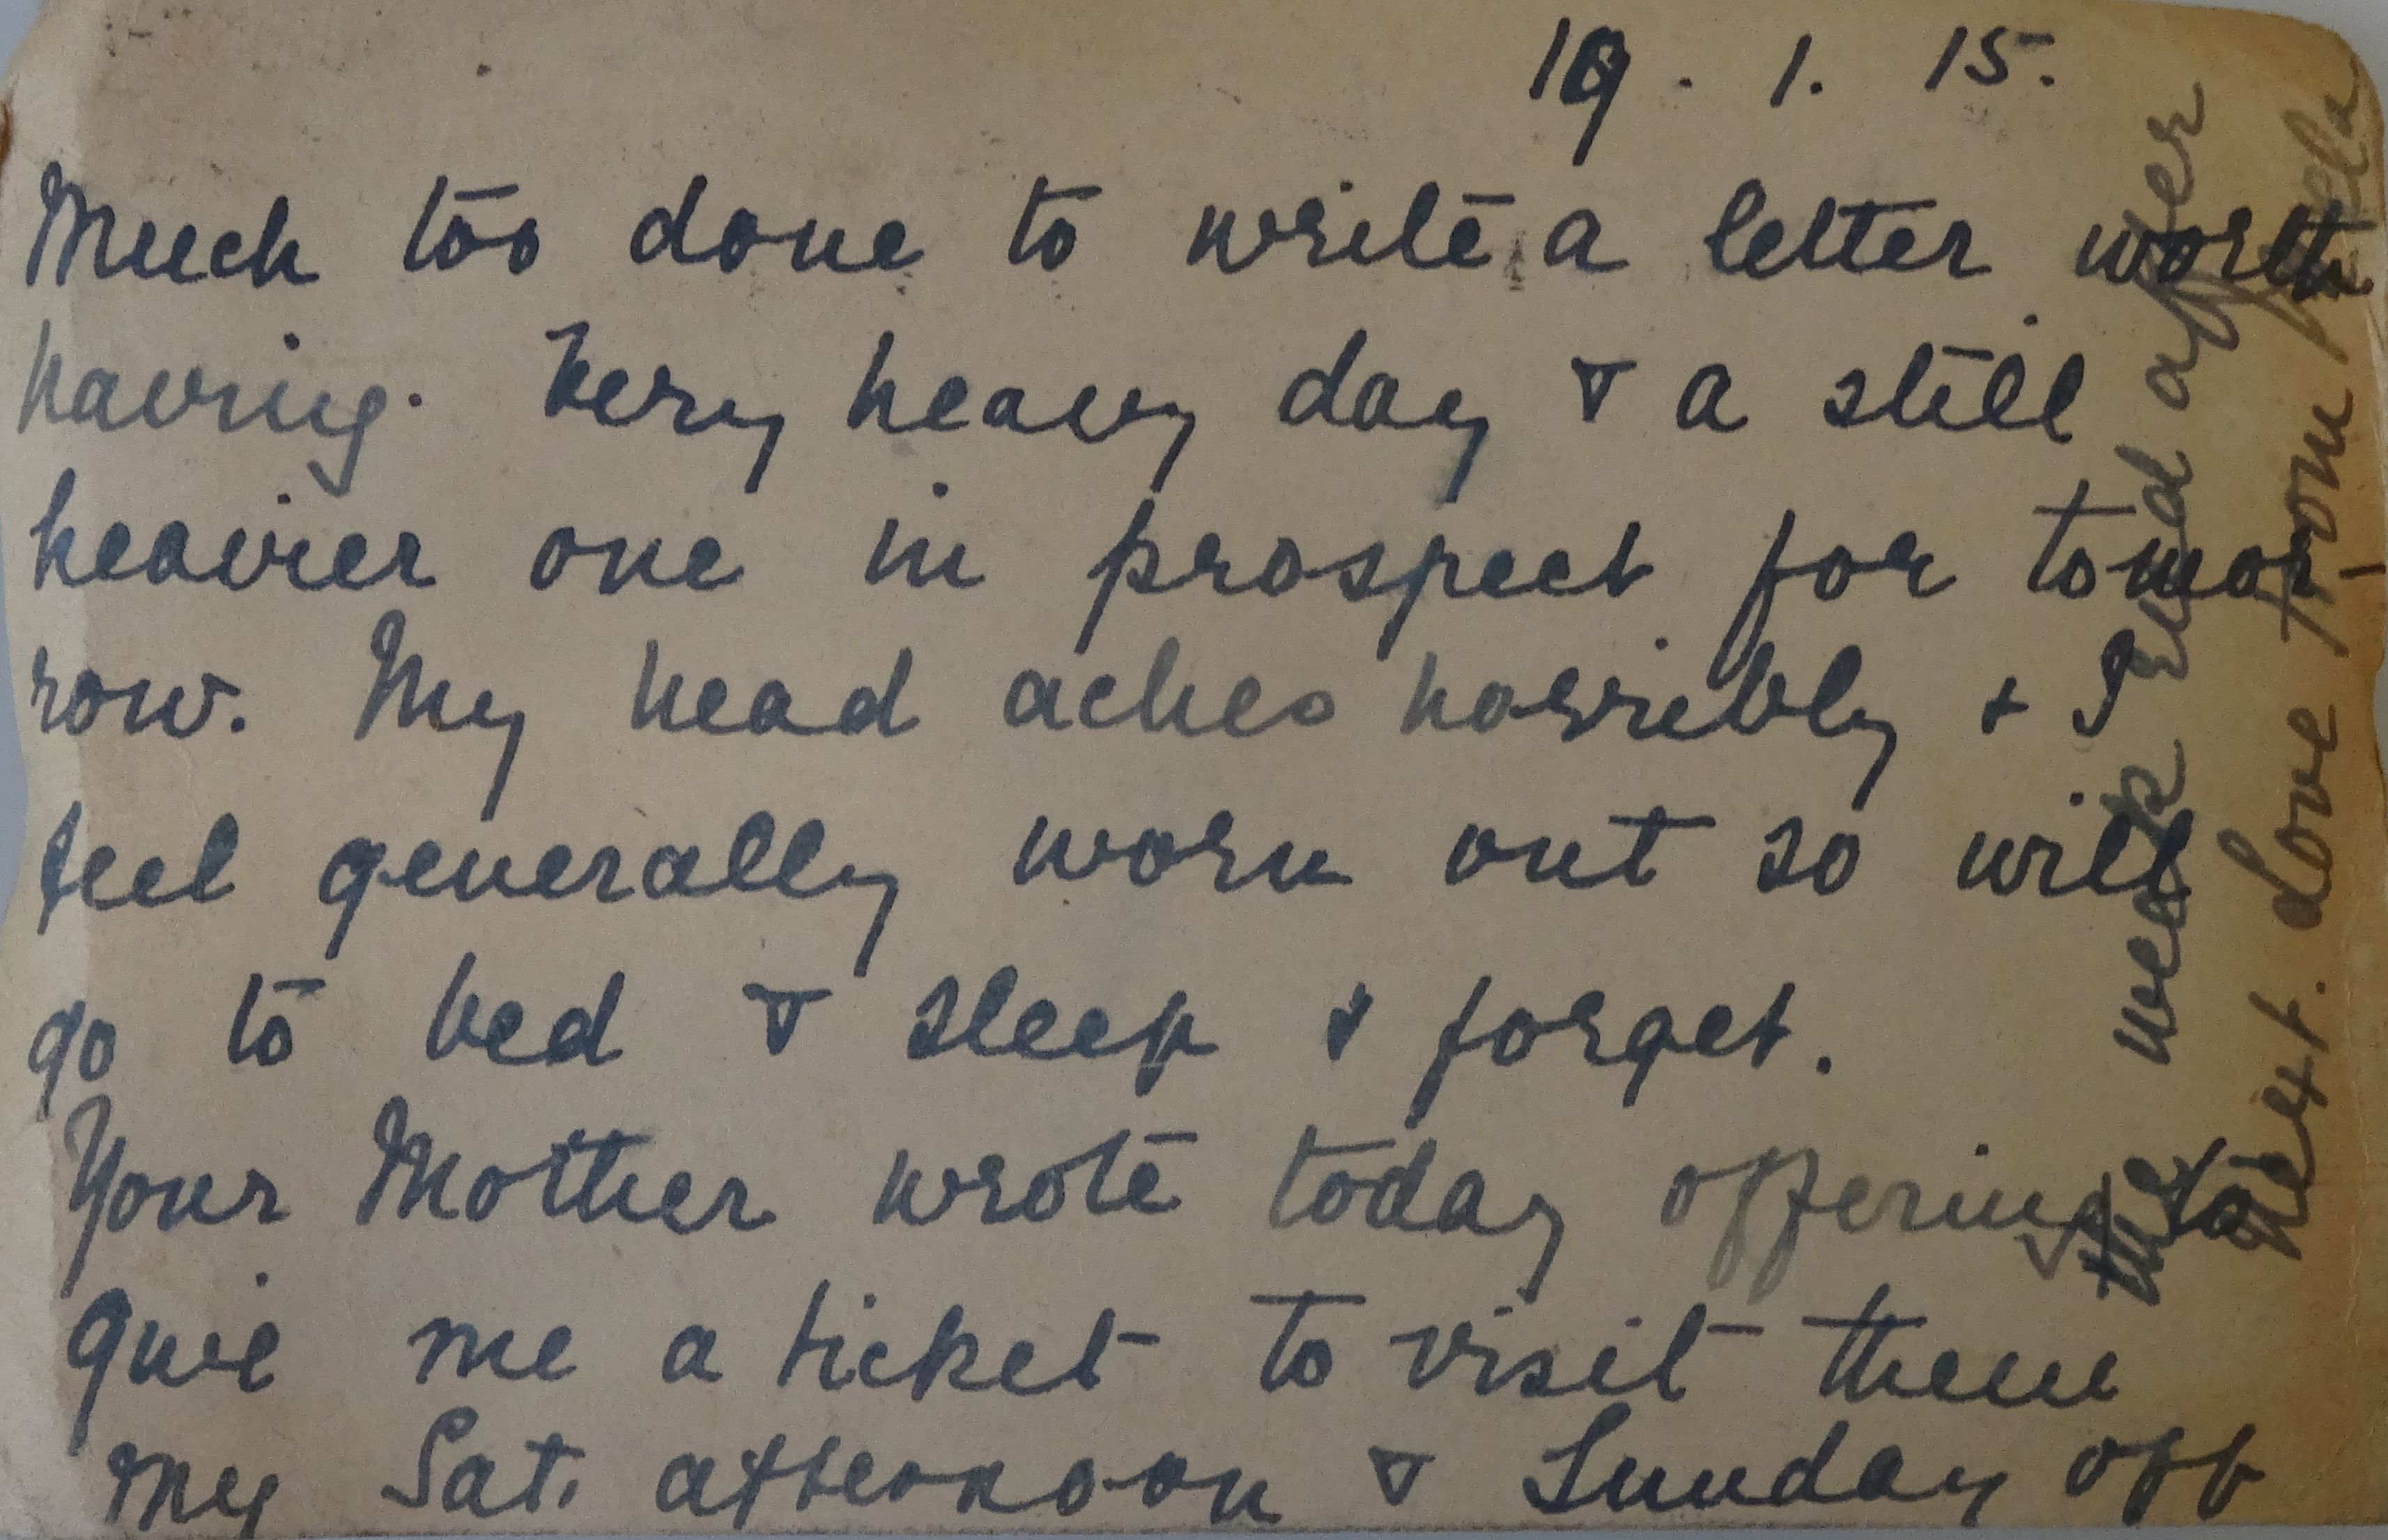 19. 1. 15.
Much too done to write a letter worth
having. Very heavy day & a still
heavier one in prospect for tomor-
row. My head aches horribly & I
feel generally worn out so will
go to bed & sleep & forget.
Your Mother wrote today offering to
give me a ticket to visit them
my Sat. afternoon & Sunday off
the week End after
next. Love from